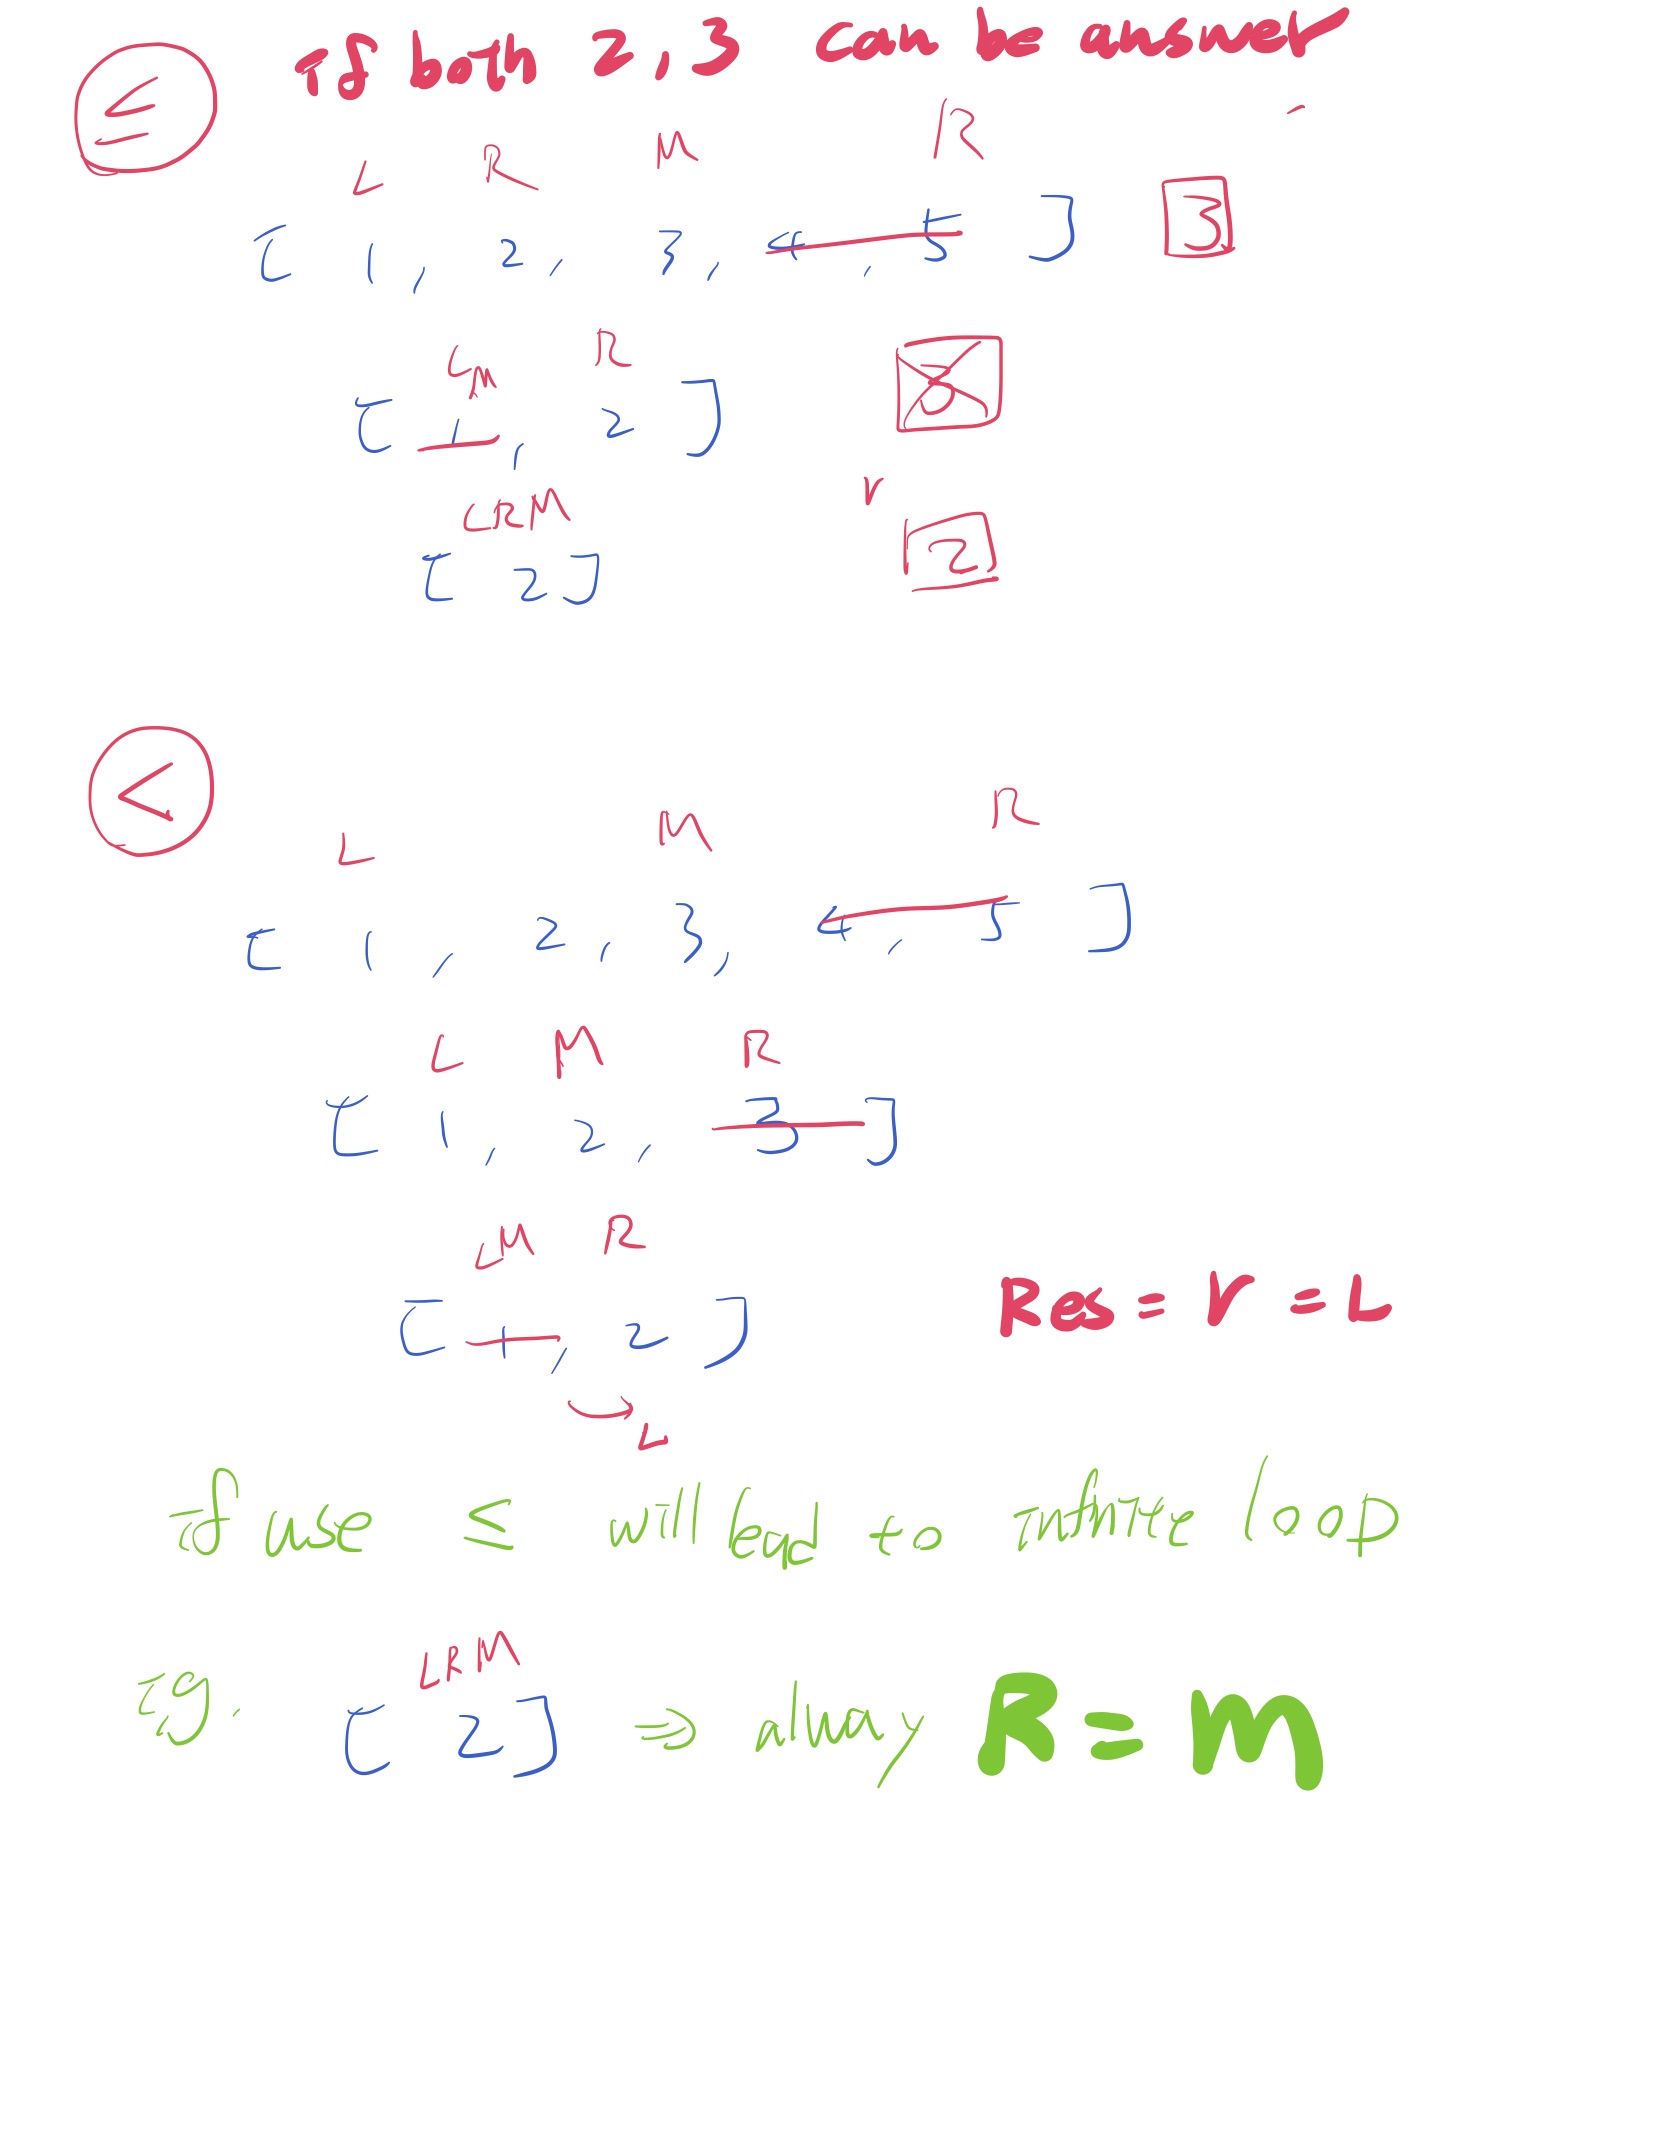 ≤ if both 2,3 can be answer
L R M R
[ 1 , 2 , 3 , 4 , 5 ] 3
L M R
[ 1 , 2 ] 3
LRM r
[ 2 ] 2
<
L M R
[ 1 , 2 , 3 , 4 , 5 ]
L M R
[ 1 , 2 , 3 ]
L M R
[ 1 , 2 ] Res = r = L
L
if use ≤ will lead to infinite loop
LRM
[ 2 ] ⇒ alway R = m